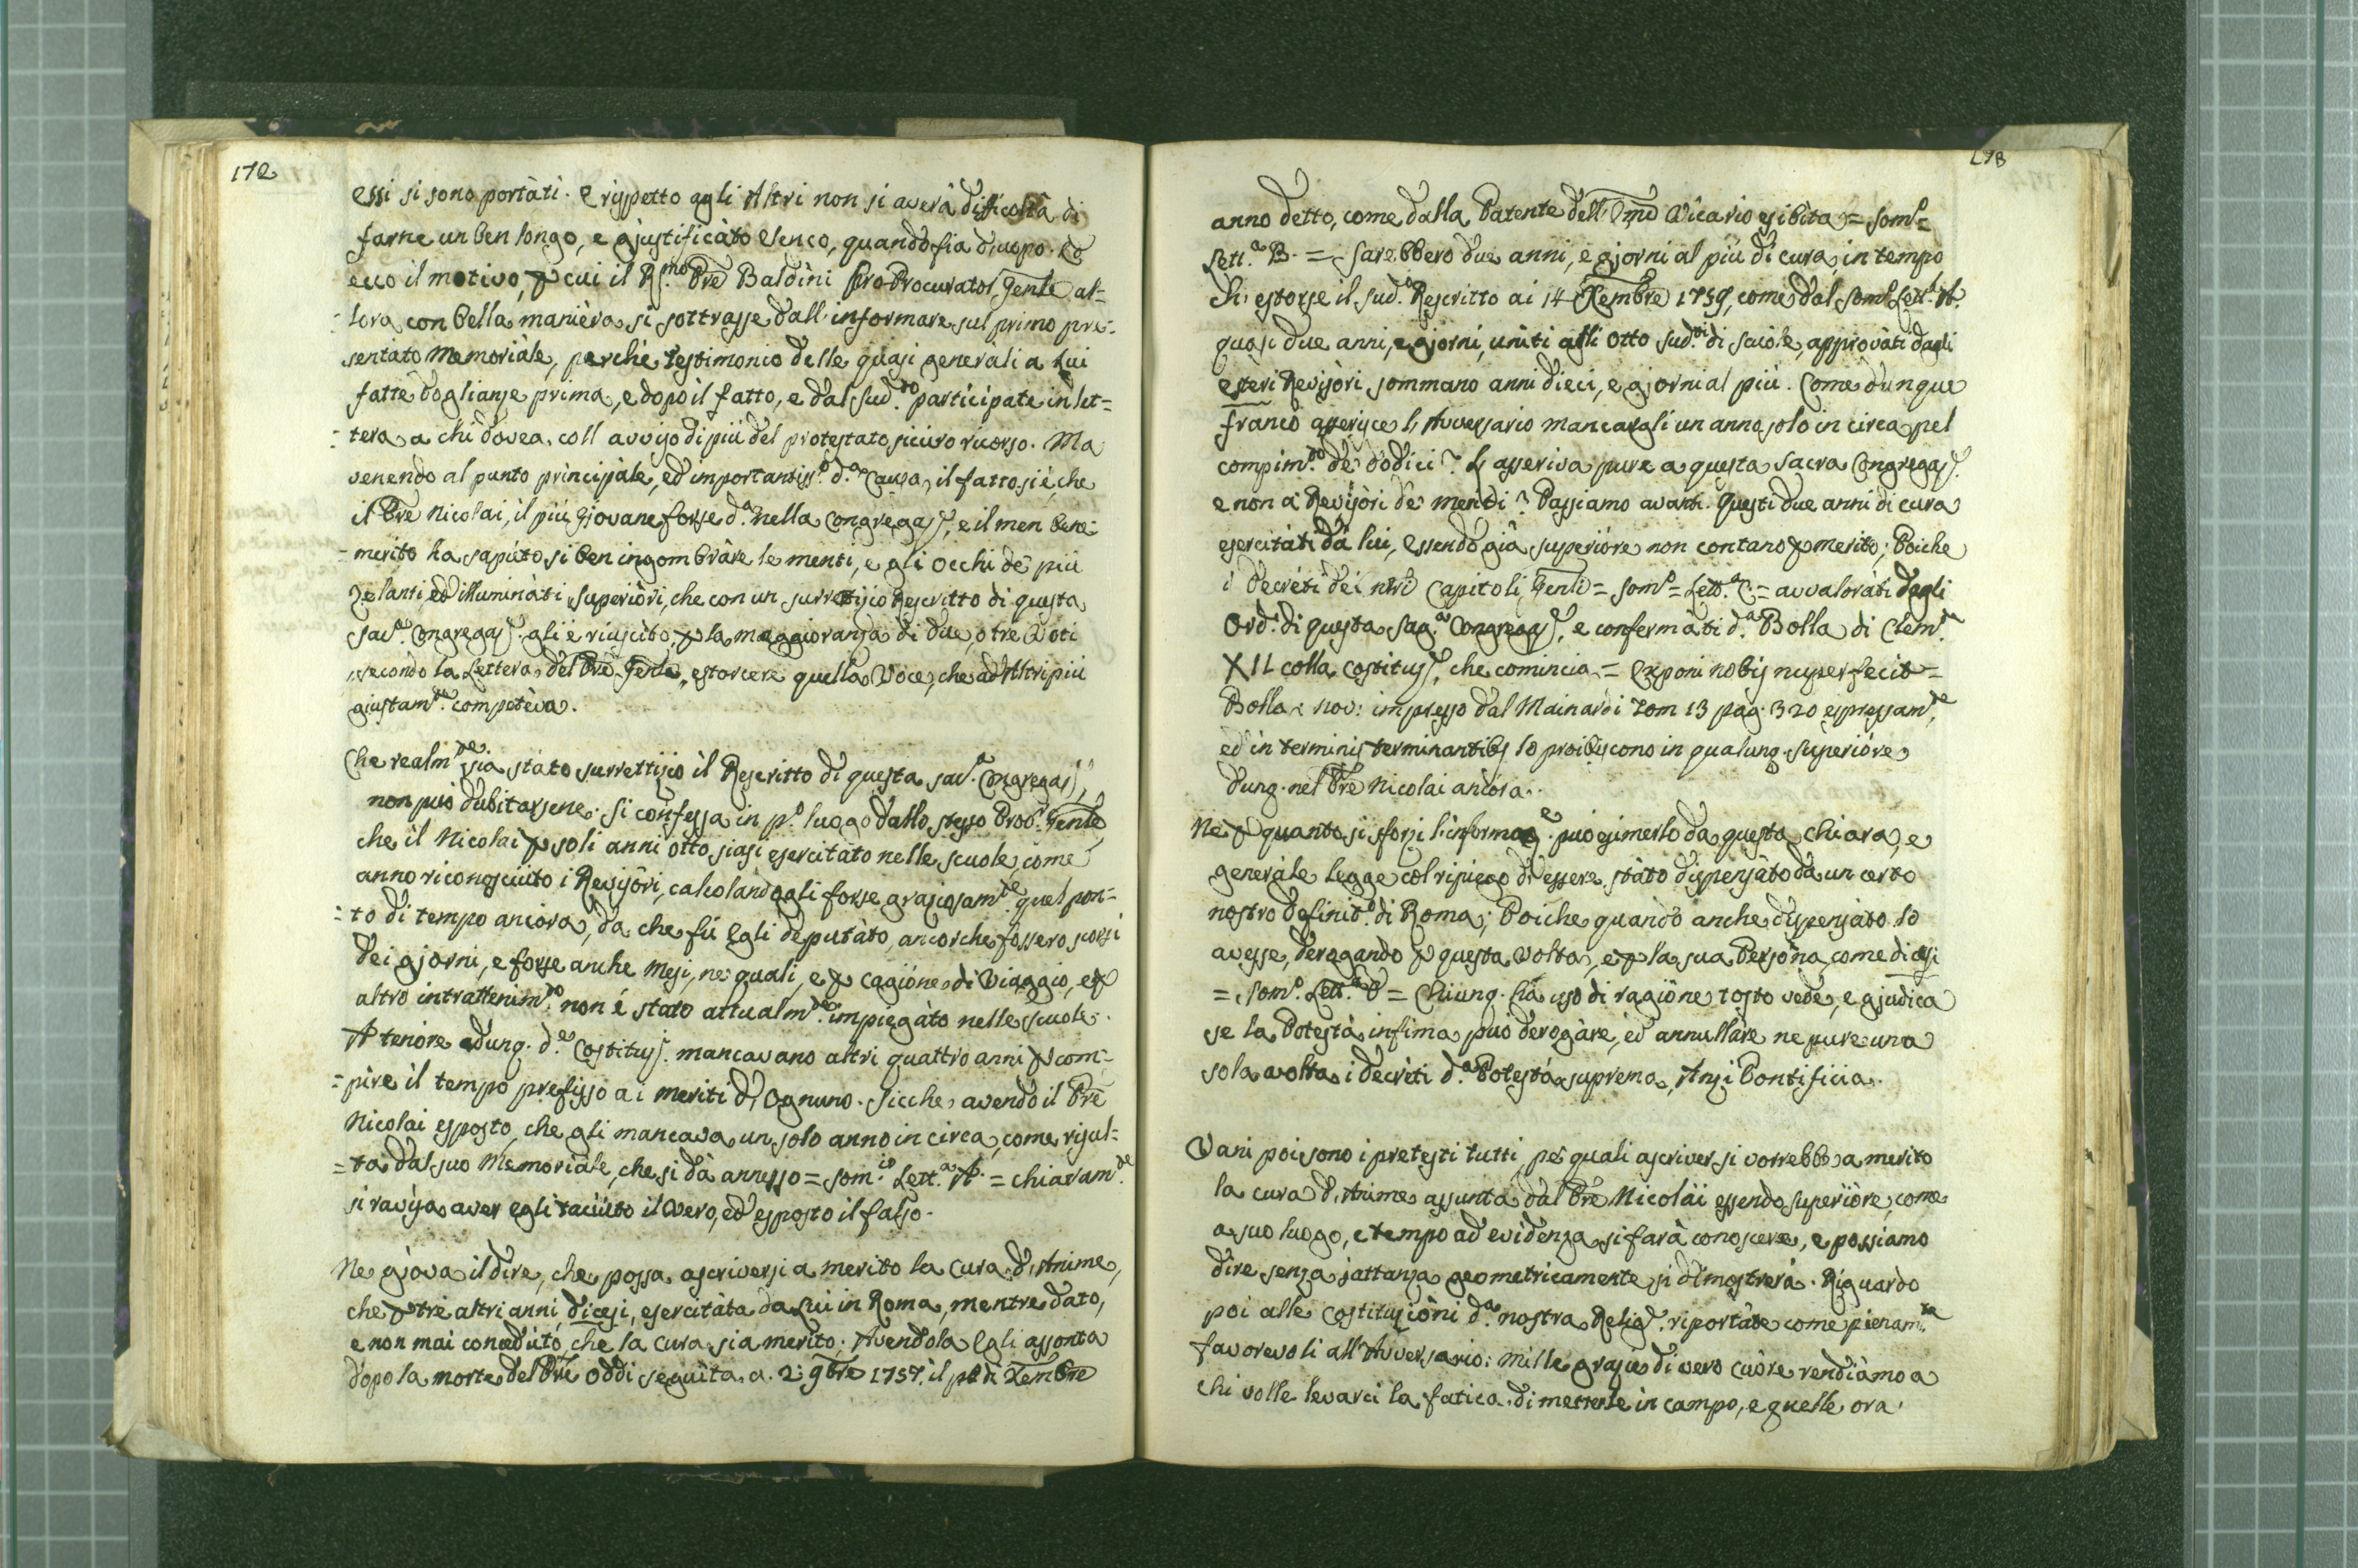 172
essi si sono portàti. e rispetto agli Altri non si averà difficoltà di
farne un ben longo, e giustificàto elenco, quando fia d'uopo. Ed
ecco il motivo, p cui il R.mo Pre Baldini Pro-Procurator, Gente al=
=lora con bella manièra si sottrasse dall'informare sul primo pre=
sentàto Memoriàle, perchè testimonio delle quasi generàli a Lui
fatte doglianze prima, e dopo il fatto, e dal Sud.to participate in let=
=tera a chi dovea, coll avviso di più del protestato sicuro ricorso. Ma
venendo al punto principàle, ed importantiss.o d.a Causa, il fatto si è, che
il Pre Nicolai, il più Giovane forse d.a nella Congregaz.e, e il men bene=
=merito ha sapùto sì ben ingombràre le menti, e gli Occhi dè più
zelanti ed illuminàti Superiòri, che con un surretizio Rescritto di questa
Sac.a Congregaz.e gli è riuscìto, p la maggioranza di due, o tre Voti
secondo la Lettera del Pre Gente, estorcere quella Voce, che ad Altri più
giustam.te competèva.
Che realm.te sia stàto surrettizio il Rescritto di questa Sac.a Congregaz.e,
non può dubitarsene. Si confessa in p.o luogo dallo stesso Proc.r Gente
che il Nicolai p soli anni otto siasi esercitàto nelle scuole, come
anno riconosciuto i Revisòri, calcolandogli forse graziosam.te quel pon=
=to di tempo ancora, da che fù Egli deputàto, ancorche fossero scorsi
dei giorni, e forse anche Mesi, ne quali, e p cagione di Viaggio, e p
altro intrattenim.to non è stato attualm.te impiegàto nelle scuole.
A tenore adunq. d.e Costituz.i mancavano altri quattro anni p com=
=pire il tempo prefisso ai meriti d'Ognuno. Sicche avendo il Pre
Nicolai esposto, che gli mancava un solo anno in circa, come risul=
=ta dal suo Memoriàle, che si dà annesso = Som.io Lett.a A. = chiaram.te
si ravisa aver egli taciùto il Vero, ed esposto il falso.
Ne giova il dire, che possa ascriversi a merito la Cura d'Anime,
che p tre altri anni, dicesi, esercitàta da Lui in Roma, mentre dato,
e non mai conceduto, che la Cura sia merito; Avendola Egli assonta
dopo la morte del Pre Oddi seguita a 2: 9bre 1757, il p.o di Xembre
173
anno detto, come dalla Patente dell'Emo Vicario esibita = Som.o =
Lett.a B. = Sarebbero due anni, e giorni al più di cura, in tempo
ch' estorse il Sud.o Rescritto ai 14 Xembre 1759, come dal Som.o Lett.a A.
quasi due anni, e giorni, uniti agli otto Sud.ti di scuole, approvàti dagli
esteri Revisòri sommano anni dieci, e giorni al più. Come dunque
franco asserisce l'Avversario mancargli un anno solo in circa pel
compim.to dè dodici? L'asseriva pure a questa Sacra Congregaz.e
e non a Revisòri dè meriti? Passiamo avanti. Questi due anni di cura
esercitàti da lui, essendo già superiòre non contano p merito; Poiche
i decréti dei nri Capitoli Genli = Som.o = Lett.a C. = avvaloràti dagli
Ord.i di questa Sag.a Congregaz.e, e confermàti d.a Bolla di Clem.te
XII colla Costituz.e, che comincia = Exponi nobis nuper fecit =
Bolla: nov: impresso dal Mainardi Tom 13 pag. 320 espressam.te,
ed in terminis terminantibs lo proibiscono in qualunq. Superióre,
dunq. nel Pre Nicolai ancóra.
Ne p quanto si sforzi l'informaz.e può esimerlo da questa chiara, e
generàle legge col ripiego di essere stàto dispensàto da un certo
nostro Definit.o di Roma; Poiche quando anche dispensàto lo
avesse, derogando p questa Volta, e p la sua Persòna, come dicesi
= Som.o Lett.a D = Chiunq. hà uso di ragióne tosto vede, e giudica
se la Potestà infima può derogàre, ed annullàre ne pure una
sola volta i decrèti d.a Potestà suprema, Anzi Pontificia.
Vani poi sono i pretesti tutti, pe quali ascriver si vorrebbe a merito
la cura d'Anime assunta dal Pre Nicolai essendo superiòre, come
a suo luogo, e tempo ad evidenza si farà conoscere, e possiamo
dire senza jattanza geometricamente si dimostrerà. Riguardo
poi alle Costituzióni d.a nostra Relig.e riportàte come pienam.te
favorevoli all'Avversario: mille grazie di vero cuòre rendiàmo a
chi volle levarci la fatica di metterle in campo, e quelle ora